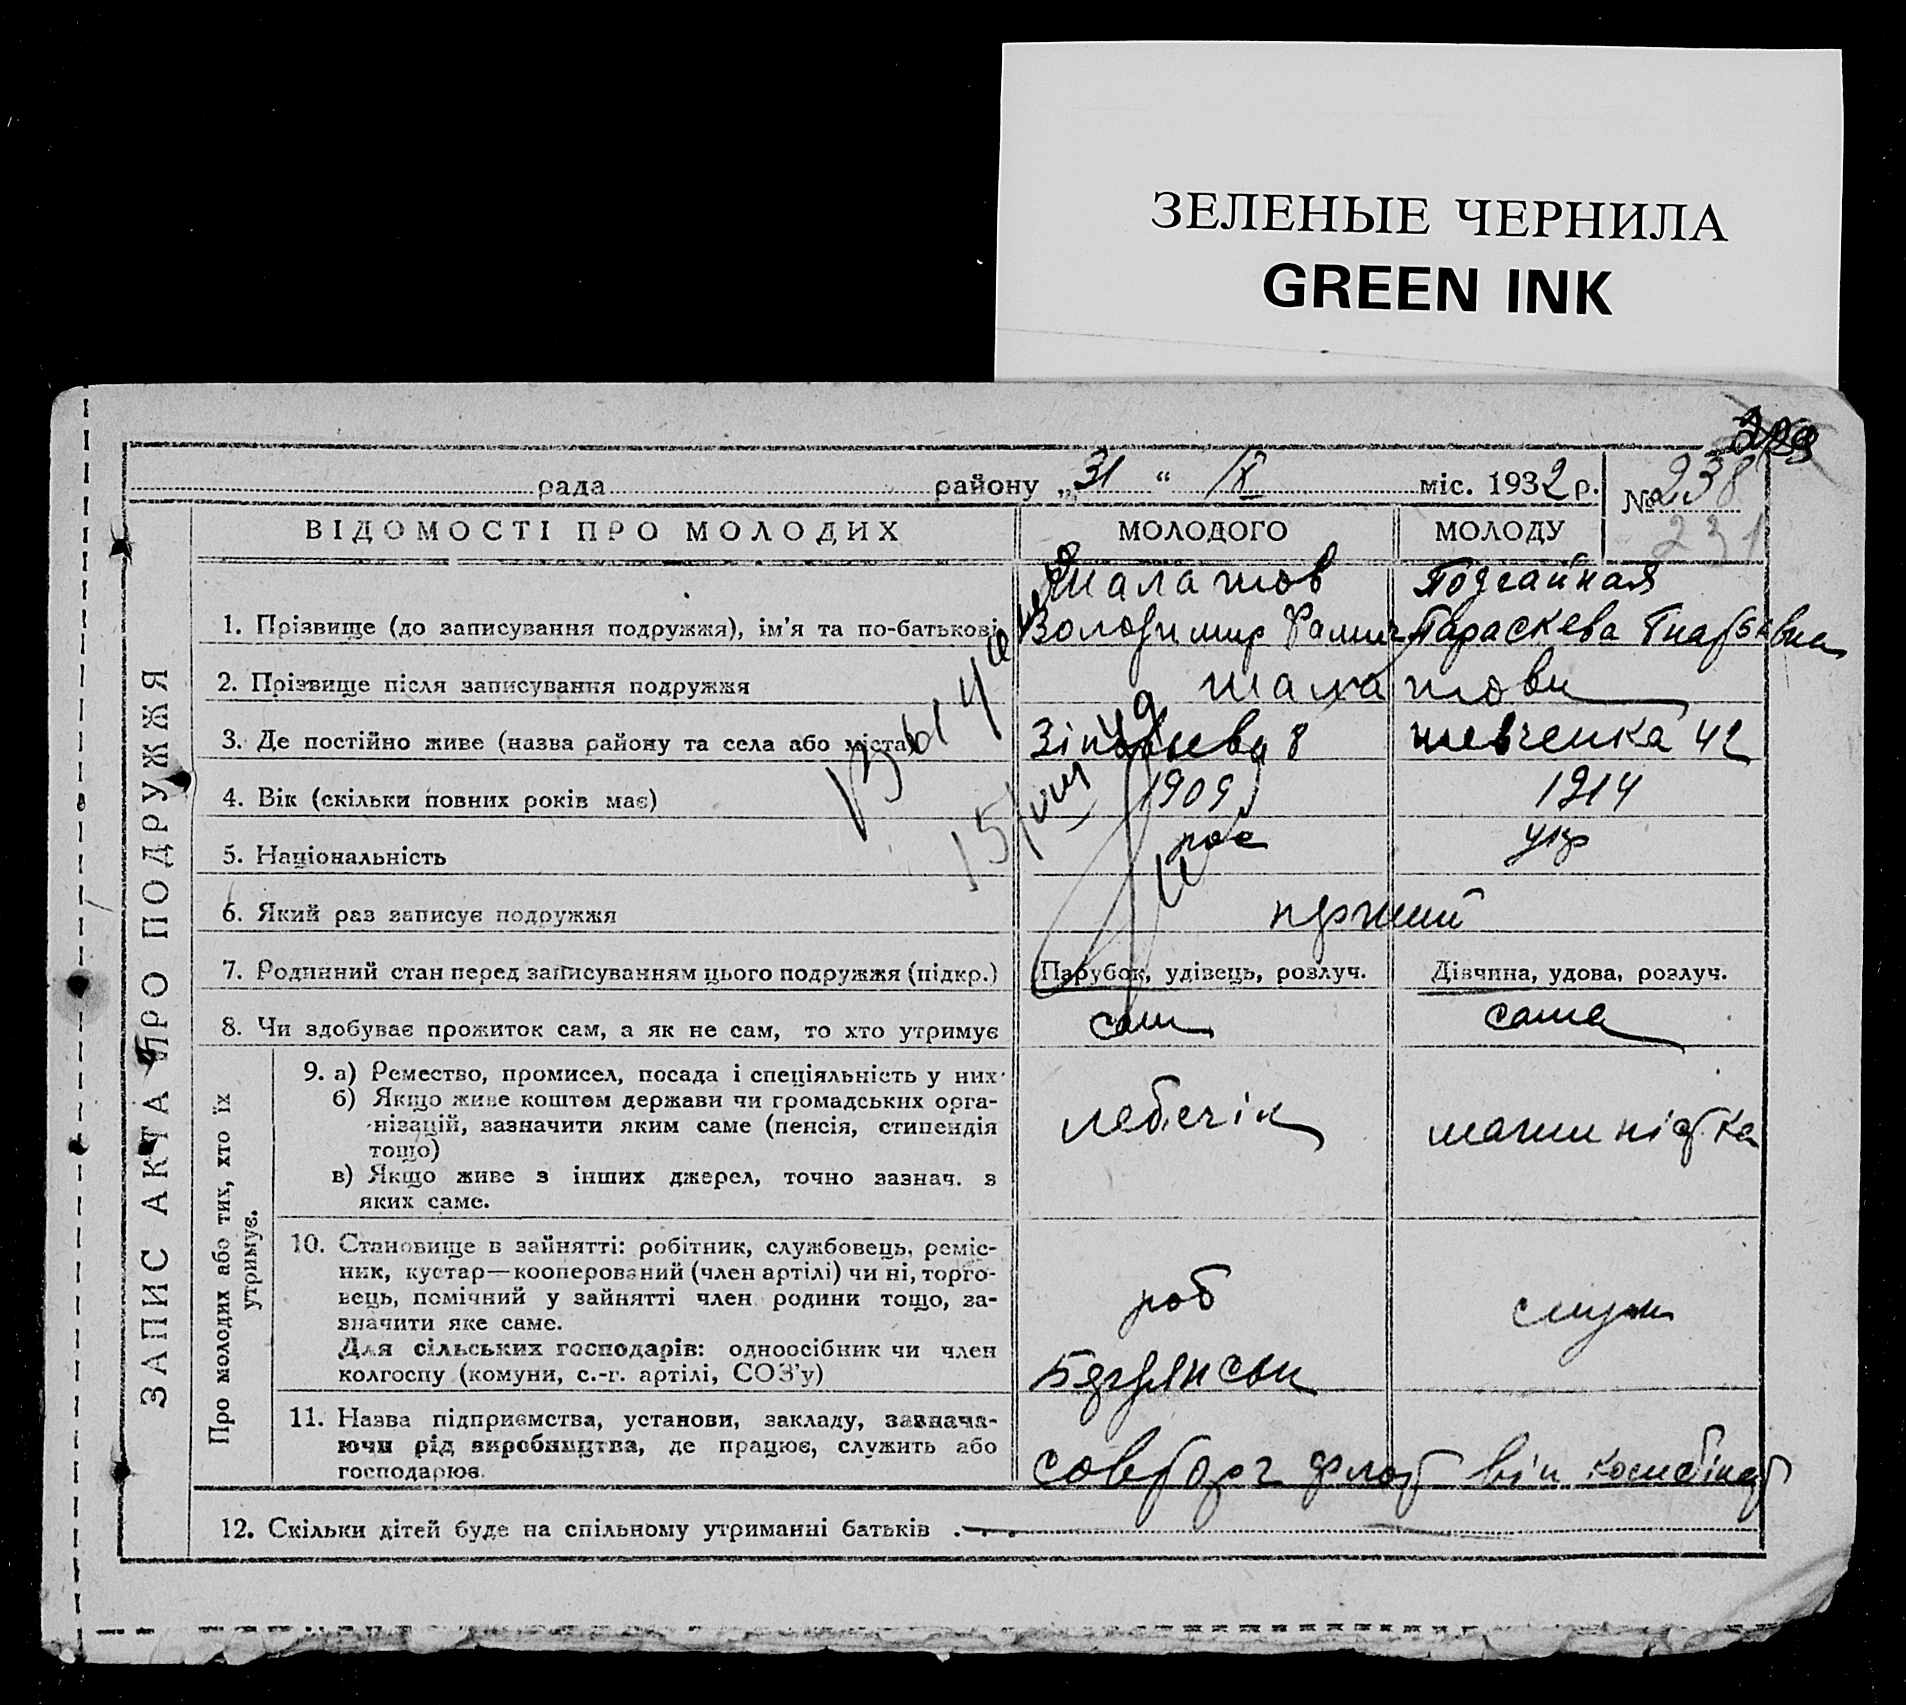 ЗЕЛЕНЫЕ ЧЕРНИЛА
GREEN INK
рада районy „31“ IX міс. 1932 р. № 238
231
ЗАПИС АКТА ПРО ПОДРУЖЖЯ
ВІДОМОСТІ ПРО МОЛОДИХ МОЛОДОГО МОЛОДУ
Шалатов Подгайная
1. Прізвище (до записування подружжя), ім'я та по-батькові Володимир Параскева
2. Прізвище після записування подружжя Шалатови
3. Де постійно живе (назва району та села або міста) 8 Шевченка 42
4. Вік (скільки повних років має) 1909 1914
5. Національність рос укр
6. Який раз записує подружжя перший
7. Родинний стан перед записуванням цього подружжя (підкр.) Парубок, удівець, розлуч. Дівчина, удова, розлуч.
8. Чи здобуває прожиток сам, а як не сам, то хто утримує сам сама
Про молодих або тих, хто їх
утримує.
9. а) Ремество, промисел, посада і спеціяльність у них
б) Якщо живе коштом держави чи громадських орга-
нізацій, зазначити яким саме (пенсія, стипендія
тощо)
в) Якщо живе з інших джерел, точно зазнач. з
яких саме.
лебечік машинідтка
10. Становище в зайнятті: робітник, службовець, реміс-
ник, кустар—кооперований (член артілі) чи ні, торго-
вець, помічний у зайнятті член родини тощо, за-
значити яке саме.
роб служ
Для сільських господарів: одноосібник чи член
колгоспу (комуни, с.-г. артілі, СОЗ'у)
11. Назва підприємства, установи, закладу, зазнача-
ючи рід виробництва, де працює, служить або
господарює.
Совторг флот він комбінат
12. Скільки дітей буде на спільному утриманні батьків . . . —